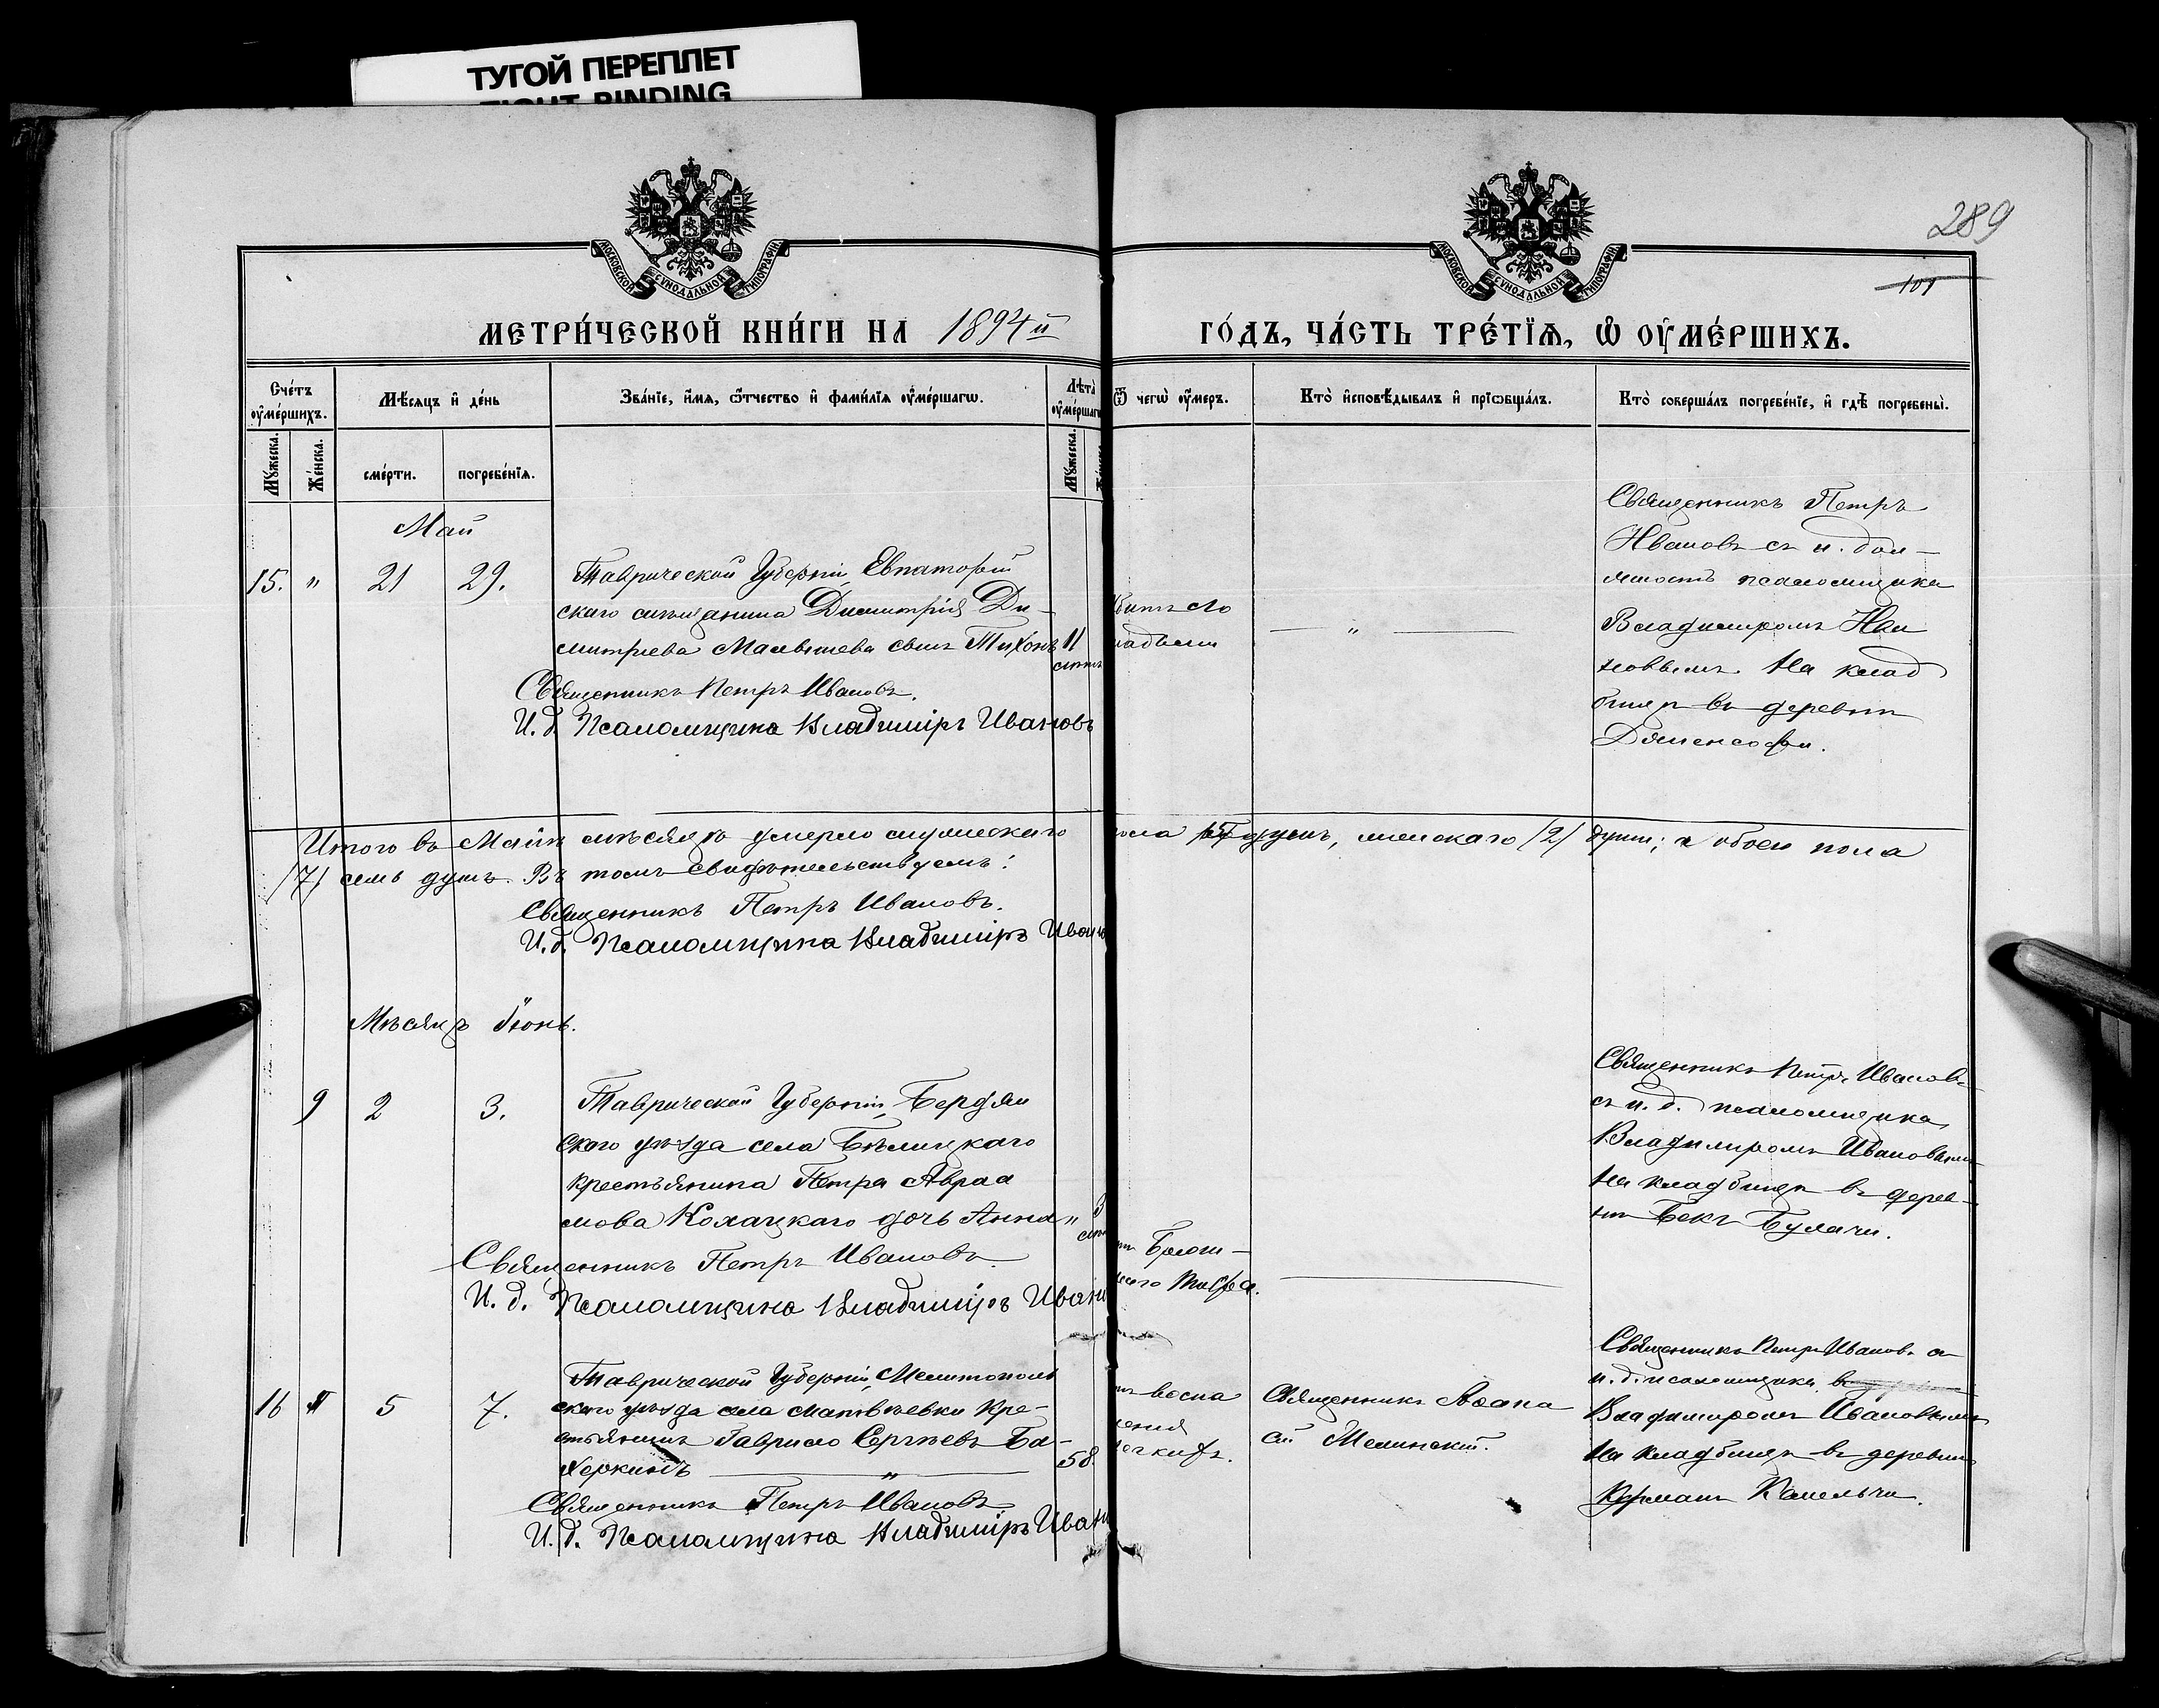 ТУГОЙ ПЕРЕПЛЕТ
TIGHT BINDING
МОСКОВСКОЙ СѴНОДАЛЬНОЙ ТИПОГРАФІИ
МОСКОВСКОЙ СѴНОДАЛЬНОЙ ТИПОГРАФІИ
289
101
МЕТРИ́ЧЕСКОЙ КНИ́ГИ НА 1894 й
ГО́ДЪ, ЧА́СТЬ ТРЕ́ТЇѦ, Ѡ҆ ОУ҆МЕ́РШИХЪ.
Сче́тъ оу҆ме́ршихъ.
Мѣ́сяцъ и҆ де́нь
Зва́нїе, и҆́мѧ, ѻ҆́тчество и҆ фамилїѧ оу҆ме́ршагѡ.
Лѣта̀ оу҆ме́ршагѡ
Ѿ чегѡ̀ оу҆́меръ.
Кто̀ и҆сповѣ́дывалъ и҆ прїѡбща́лъ.
Кто̀ соверша́лъ погребе́нїе, и҆ гдѣ̀ погребены̀.
Мꙋ́жеска.
Же́нска.
сме́рти.
погребе́нїѧ.
Мꙋ́жеска.
Май
15. " 21 29.
Таврической Губерніи, Евпаторій
скаго мѣщанина Димитрія Ди-
митріева Малышева сынъ Тихонъ 11
Священникъ Петръ Ивановъ.
И. д. Псаломщика Владиміръ Ивановъ
"
Священникъ Петръ
Ивановъ съ и. дол-
жность псаломщика
Владимиромъ Ива
новымъ. На клад
бищѣ въ деревни
Итого въ Маѣ мѣсяцѣ умерло мужескаго пола /5/ душъ, женскаго /2/ души; а обоего пола
/7/ семь душъ. Въ томъ свидѣтельствуемъ:
Священникъ Петръ Ивановъ.
И. д. Псаломщика Владиміръ Иван
Мѣсяцъ Іюнь.
9 2 3.
Таврической Губерніи, Бердян
скаго уѣзда села Бѣлицкаго
крестьянина Петра Авраа
мова Колацкаго дочь Анна " 3
Священникъ Петръ Ивановъ
И. д. Псаломщика Владиміръ Иван
Брюш-
наго тифа.
Священникъ Петръ Ивановъ
съ и. д. псаломщика
Владимиромъ Ивановымъ
На кладбищѣ въ дерев-
ни Бекъ Булачи.
16 " 5 7.
Таврической Губерніи, Мелитополь
скаго уѣзда села Матвѣевки кре-
стьянинъ Гаврило Сергѣевъ Ба-
херкинъ " 58.
Священникъ Петръ Ивановъ
И. д. Псаломщика Владиміръ Иван
воспа
ленія
легкихъ.
Священникъ Афана
сій
Священникъ Петръ Ивановъ съ
и. д. псаломщика
Владимиромъ Ивановымъ
На кладбищѣ въ деревни
Курманъ Кемельчи.